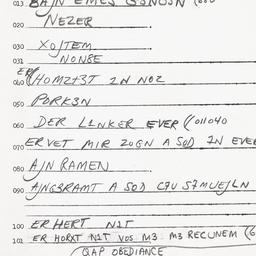 013 BAJN EMES GƎNOSN (000
NEZER
020
030 XOJTEM
031 NONƎE
040 HOMZTƎT IN NOZ
050 PORKƎN
060 DER LINKER EVER ((011040
070 ERVET MIR ZOGN A SOD IN EVER
080 AJN RAMEN
090 AJNGƎRAMT A SOD
100 ER HERT NIT
101 ER HORXT NIT VOS MƎ MƎ RECUNEM
GAP OBEDIANCE